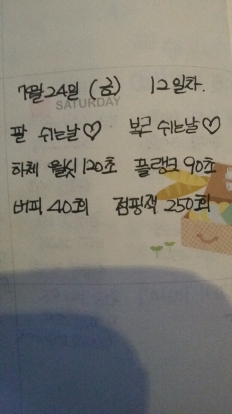 7월 24일 (금) 12일차.
SATURDAY
팔 쉬는날♡ 복근 쉬는날♡
하체 월싯 120초 플랭크 90초
버피 40회 점핑잭 250회